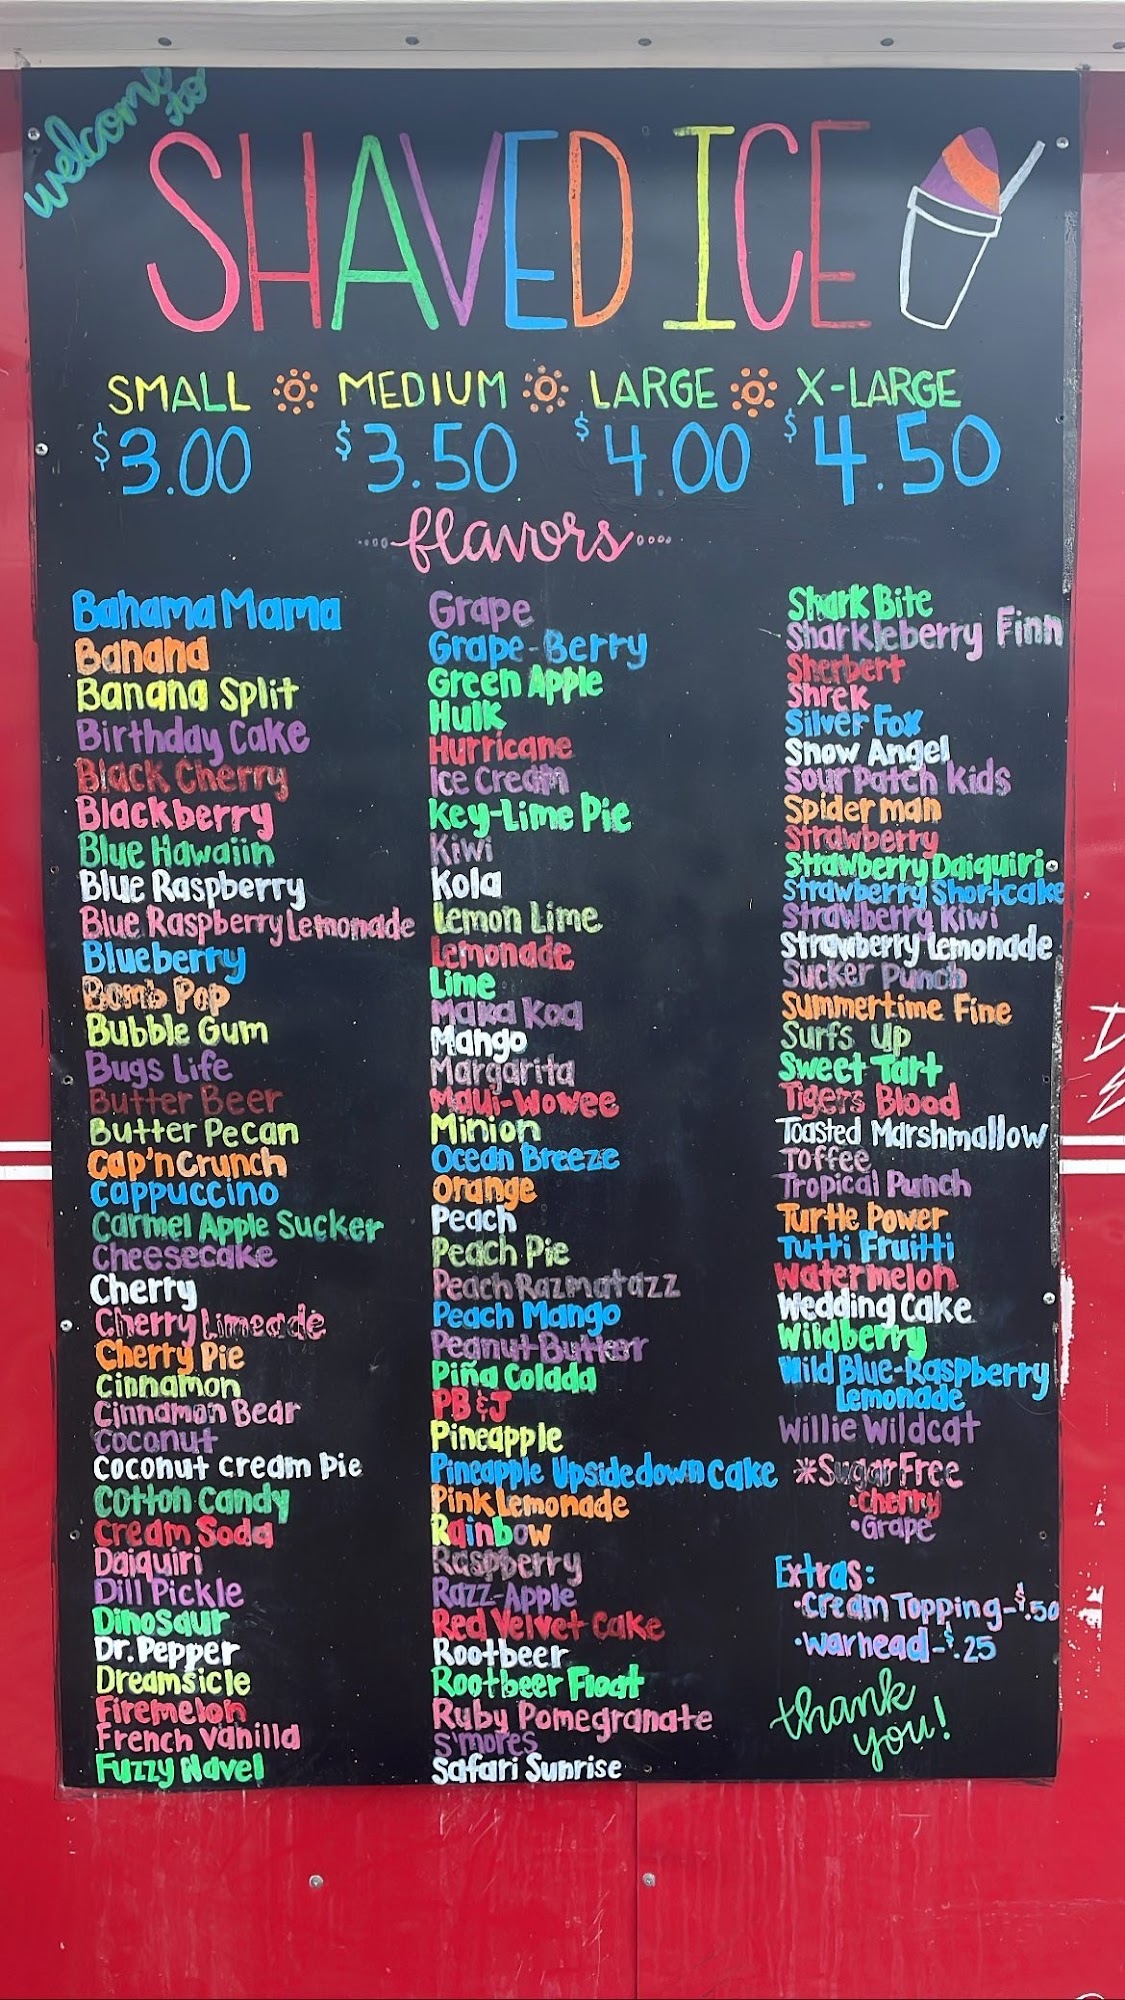 welcome to
SHAVED ICE
SMALL MEDIUM LARGE X-LARGE
$3.00 $3.50 $4.00 $4.50
flavors
Bahama Mama
Banana
Banana Split
Birthday Cake
Black Cherry
Blackberry
Blue Hawaiin
Blue Raspberry
Blue Raspberry Lemonade
Blueberry
Bomb Pop
Bubble Gum
Bugs Life
Butter Beer
Butter Pecan
Cap'n Crunch
Cappuccino
Carmel Apple Sucker
Cheesecake
Cherry
Cherry Limeade
Cherry Pie
Cinnamon
Cinnamon Bear
Coconut
Coconut Cream Pie
Cotton Candy
Cream Soda
Daiquiri
Dill Pickle
Dinosaur
Dr. Pepper
Dreamsicle
Firemelon
French Vanilla
Fuzzy Navel
Grape
Grape-Berry
Green Apple
Hulk
Hurricane
Ice Cream
Key-Lime Pie
Kiwi
Kola
Lemon Lime
Lemonade
Lime
Maka Koa
Mango
Margarita
Maui-Wowee
Minion
Ocean Breeze
Orange
Peach
Peach Pie
Peach Razmatazz
Peach Mango
Peanut Butter
Piña Colada
PB & J
Pineapple
Pineapple Upside down Cake
Pink Lemonade
Rainbow
Raspberry
Razz-Apple
Red Velvet Cake
Rootbeer
Rootbeer Float
Ruby Pomegranate
S'mores
Safari Sunrise
Shark Bite
Sharkleberry Finn
Sherbert
Shrek
Silver Fox
Snow Angel
Sour Patch Kids
Spider man
Strawberry
Strawberry Daiquiri
Strawberry Shortcake
Strawberry Kiwi
Strawberry Lemonade
Sucker Punch
Summertime Fine
Surfs Up
Sweet Tart
Tigers Blood
Toasted Marshmallow
Toffee
Tropical Punch
Turtle Power
Tutti Fruitti
Watermelon
Wedding Cake
Wildberry
Wild Blue-Raspberry
Lemonade
Willie Wildcat
*Sugar Free
•Cherry
•Grape
Extras:
•Cream Topping-$.50
•Warhead-$.25
thank
you!